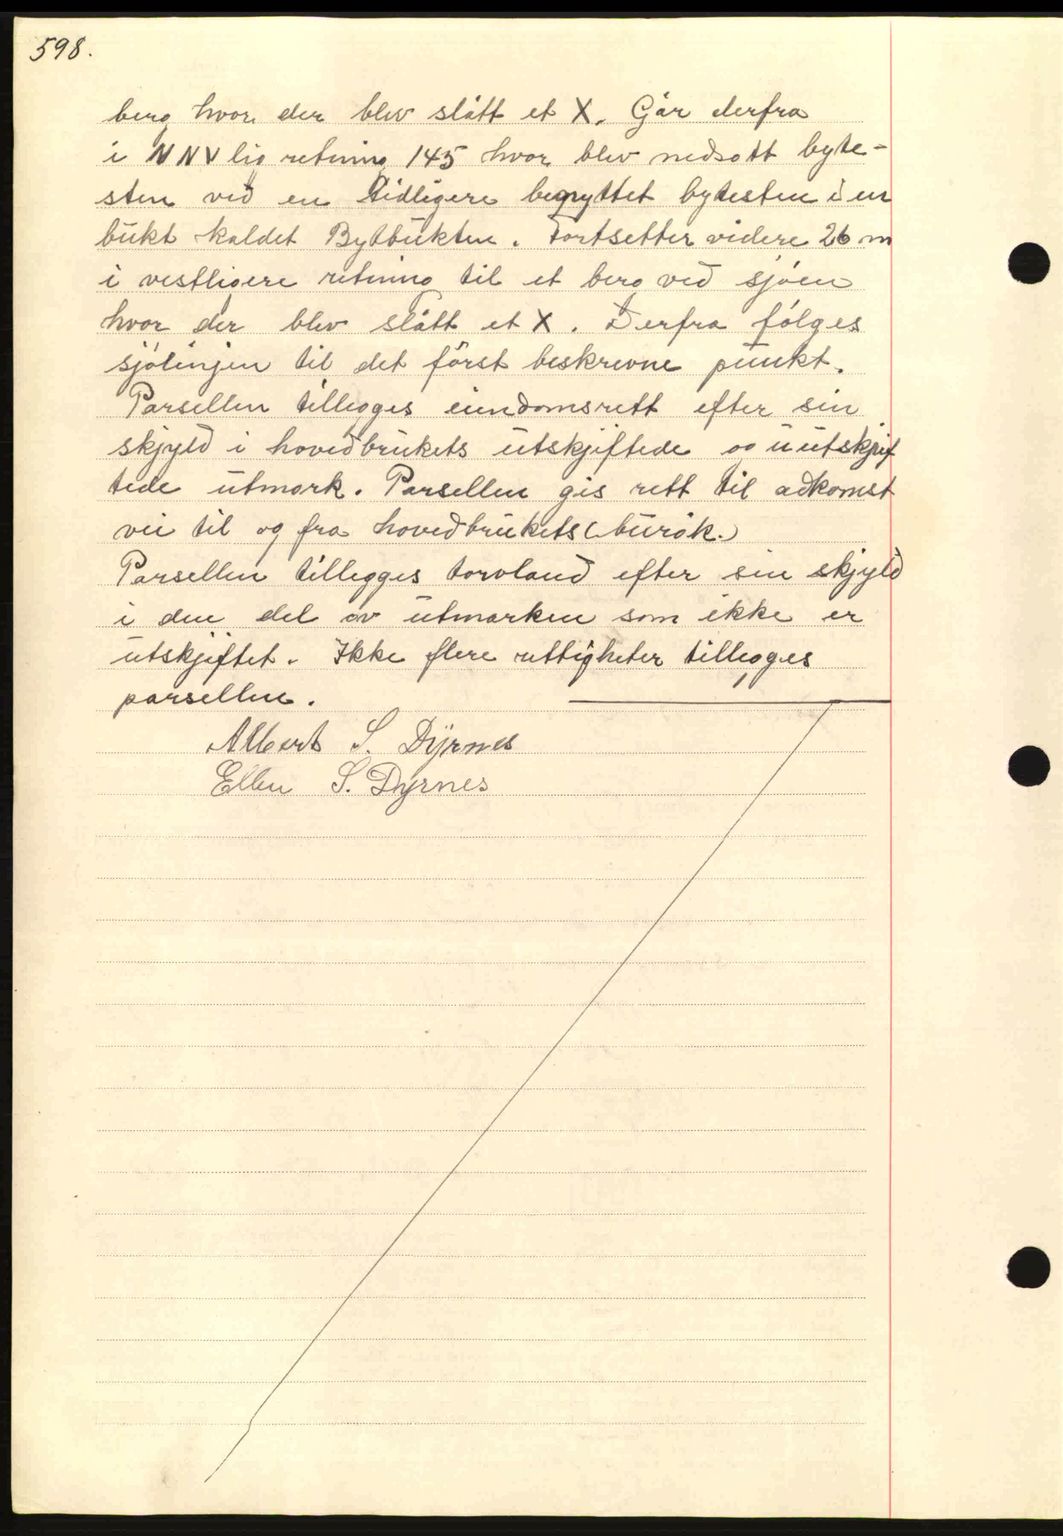 598.
berg hvor der blev slått et X. Går derfra
i NNVlig retning 145 hvor blev nedsatt byte-
sten ved en tidligere benyttet bytesten i en
bukt kaldet Bytbukten. Fortsetter videre 26 m
i vestligere retning til et berg ved sjöen
hvor der blev slått et X. Derfra fölges
sjölinjen til det först beskrevne punkt.
Parsellen tillegges eiendomsrett efter sin
skjyld i hovedbrukets utskjiftede og uutskjif
tede utmark. Parsellen gis rett til adkomst
vei til og fra hovedbrukets
Parsellen tillegges torvland efter sin skjyld
i den del av utmarken som ikke er
utskjiftet. Ikke flere rettigheter tillegges
parsellen.
Albert S. Dyrnes
Ellen S. Dyrnes